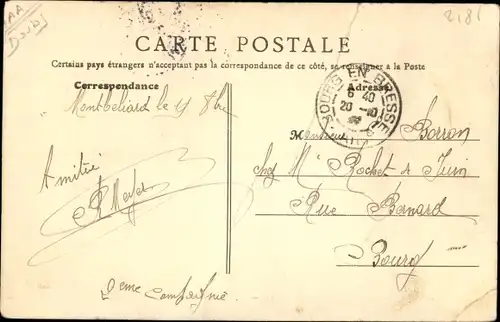 AA
Doubs
2181
CARTE POSTALE
Certains pays étrangers n'acceptant pas la correspondance de ce côté, se renseigner à la Poste
Correspondance
Adresse
BOURG EN BRESSE
6 40
20 - 10
AIN
Montbéliard le 17 8bre
Monsieur Borron
chez Mr Rochet & Juin
Rue Bernard
Bourg
Amitié
R Meyer
9eme Compagnie